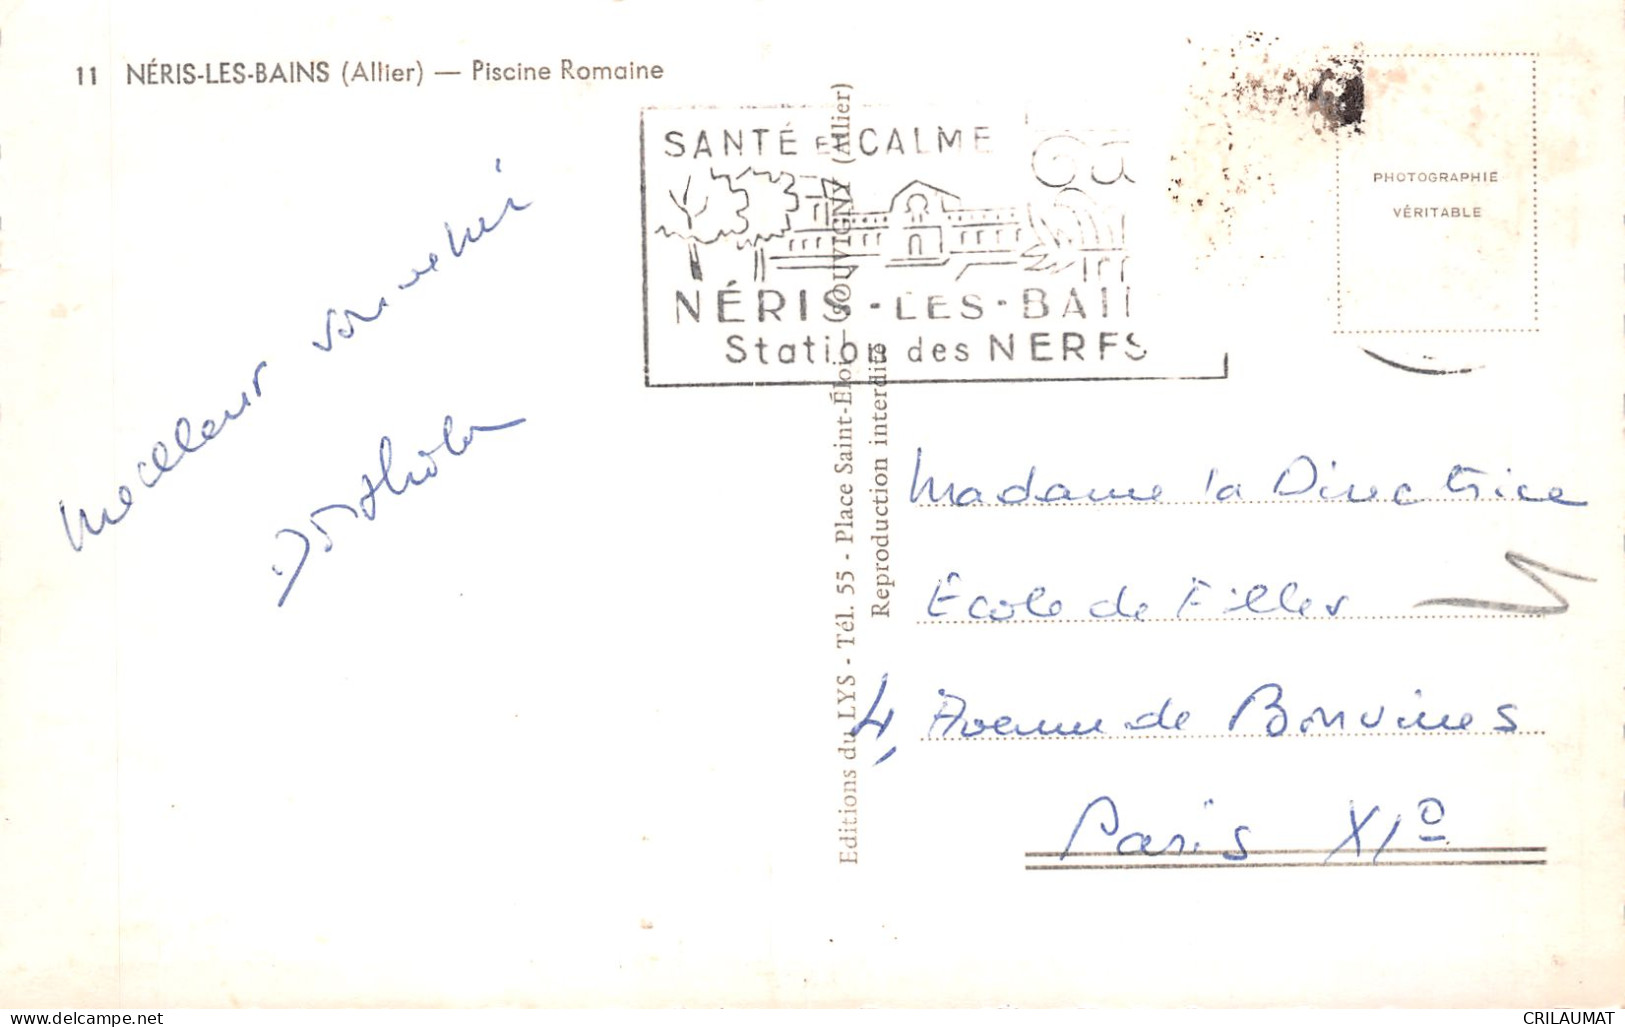 11 NÉRIS-LES-BAINS (Allier) — Piscine Romaine
SANTÉ ET CALME
NÉRIS-LES-BAI
Station des NERFS
PHOTOGRAPHIE
VÉRITABLE
Editions du LYS - Tél. 55 - Place Saint-Éloi - SOUVIGNY (Allier)
Reproduction interdite
Meilleur souvenir
Madame la Directrice
Ecole de Filles
4, Avenue de Bouvines
Paris XIº
www.delcampe.net
CRILAUMAT